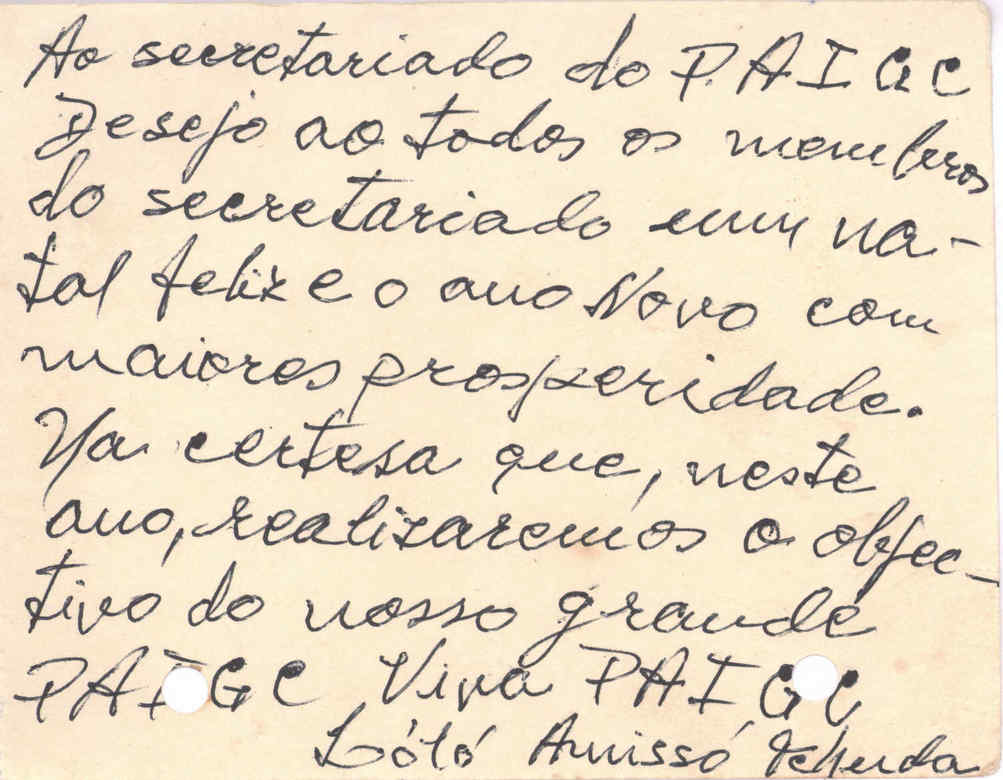 Ao secretariado do P.A I G C
Desejo ao todos os membros
do secretariado um na-
tal feliz e o ano Novo com
maiores prosperidade.
Na certesa que, neste
ano, realizaremos o objec-
tivo do nosso grande
PAIGC Viva PAIGC
Lótó Amissó